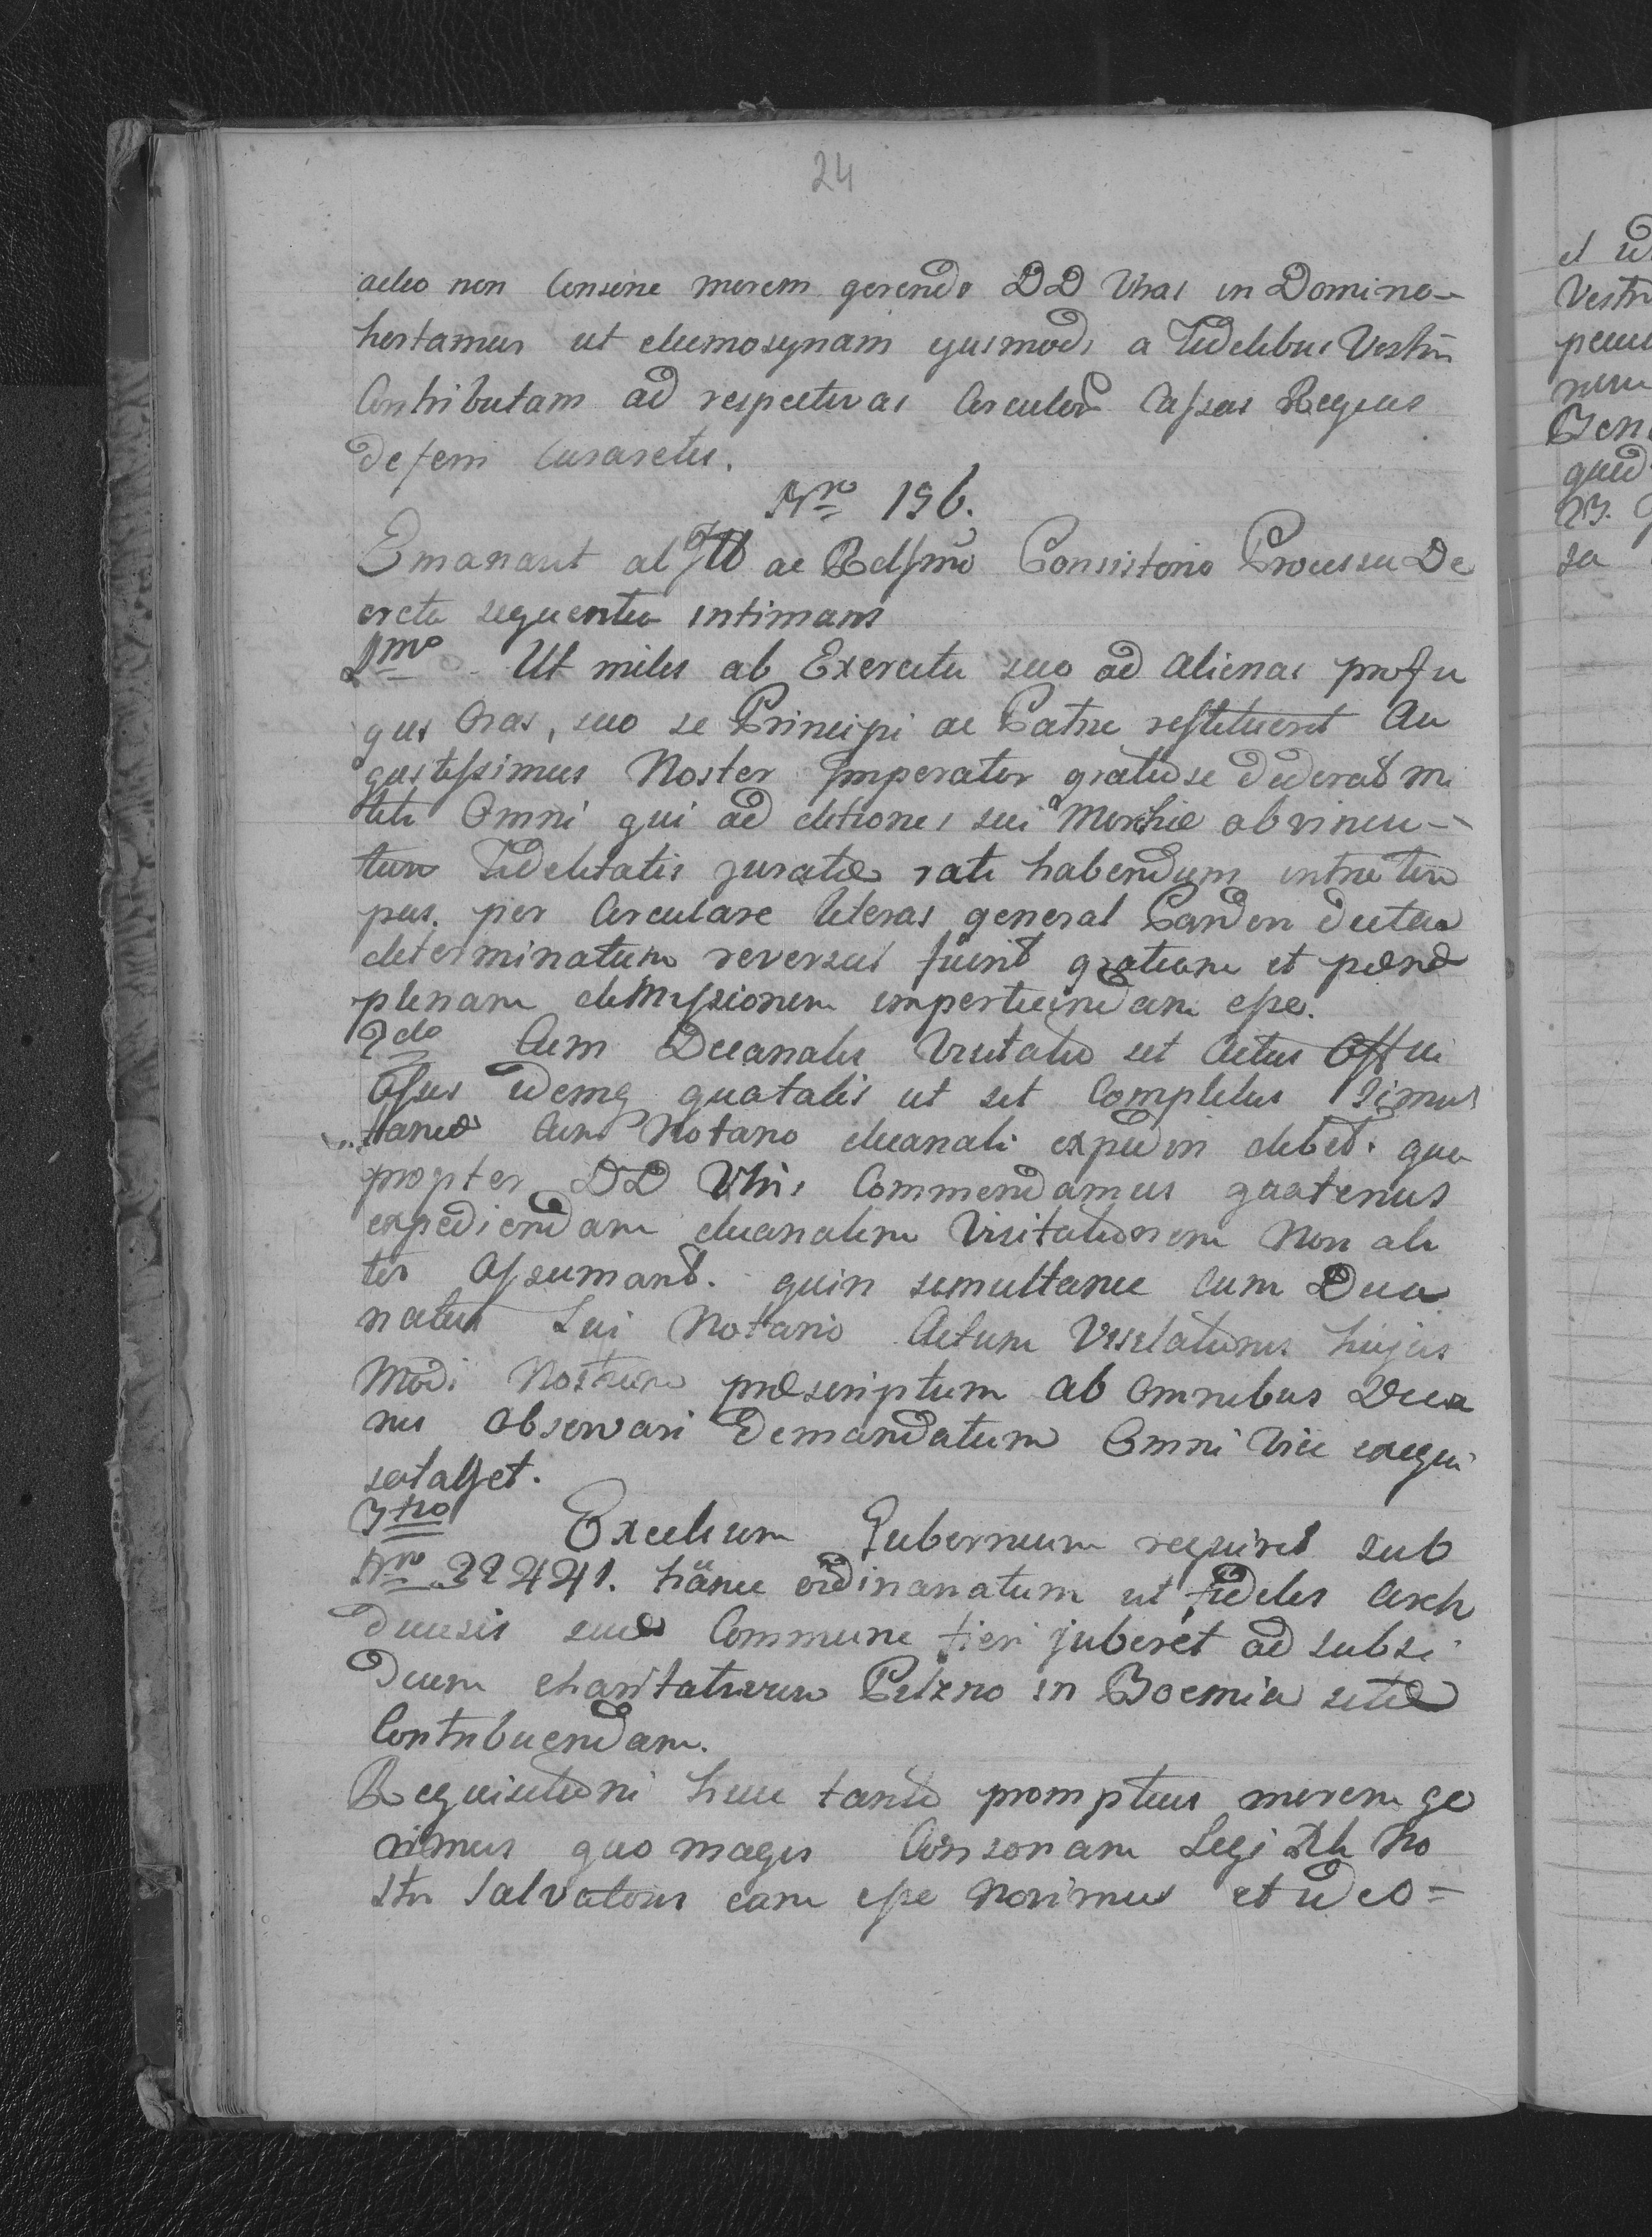 24
adeo non censene morem gerendo DD Vras in Domino-
hortamur ut eleemosynam ejusmodi a Fidelibus Vestris
Contributam ad respectivas Circulor Cassas Regias
deferri curaretis.
Nro 196.
Emanavit ab Ill ac Rdssmo Consistorio Processu De
creta sequentia intimans
1mo Ut miles ab Exercitu suo ad alienas profu
gus Oras, suo se Principi ac Patriæ restituerit Au
gustissimus Noster Imperator gratiose dederat mi
liti Omni qui ad ditiones sui obvincu-
lum Fidelitatis juratæ rati habendum intra tem
pus per Circulare literas general Pardon dictas
determinatum reversus fuerit gratiam et pœnæ
plenam demissionem impertiendam esse.
2do Cum Decanalis Visitatio sit Actus Offici
osus idemq qua talis ut sit Completus simul
tanee cum Notario decanali expediri debet. qua
propter DD Vris Commendamus quatenus
expediendam decanalem Visitationem Non ali
ter assumant. quin simultanee cum Deca
natus Sui Notario Actum Visitationis hujus
Modi Nostrum præscriptum ab omnibus Deca
nis Observari Demandatum Omni Vice exequi
satagget.
3tio Excelsum Gubernium requiret sub
Nro 22441. hance ordinariatum ut fideles Arch
diœcesis suæ Commune fieri juberet ad subsi
dium charitativum Pilzno in Boemia sitæ
Contribuendam.
Requisitioni huic tanto promptius morem ge
rimus quo magis Consonam Legi No
stri Salvatoris eam esse Novimus et ideo=
et
Vestr
pecu
num
Gen
quid
23.
sa